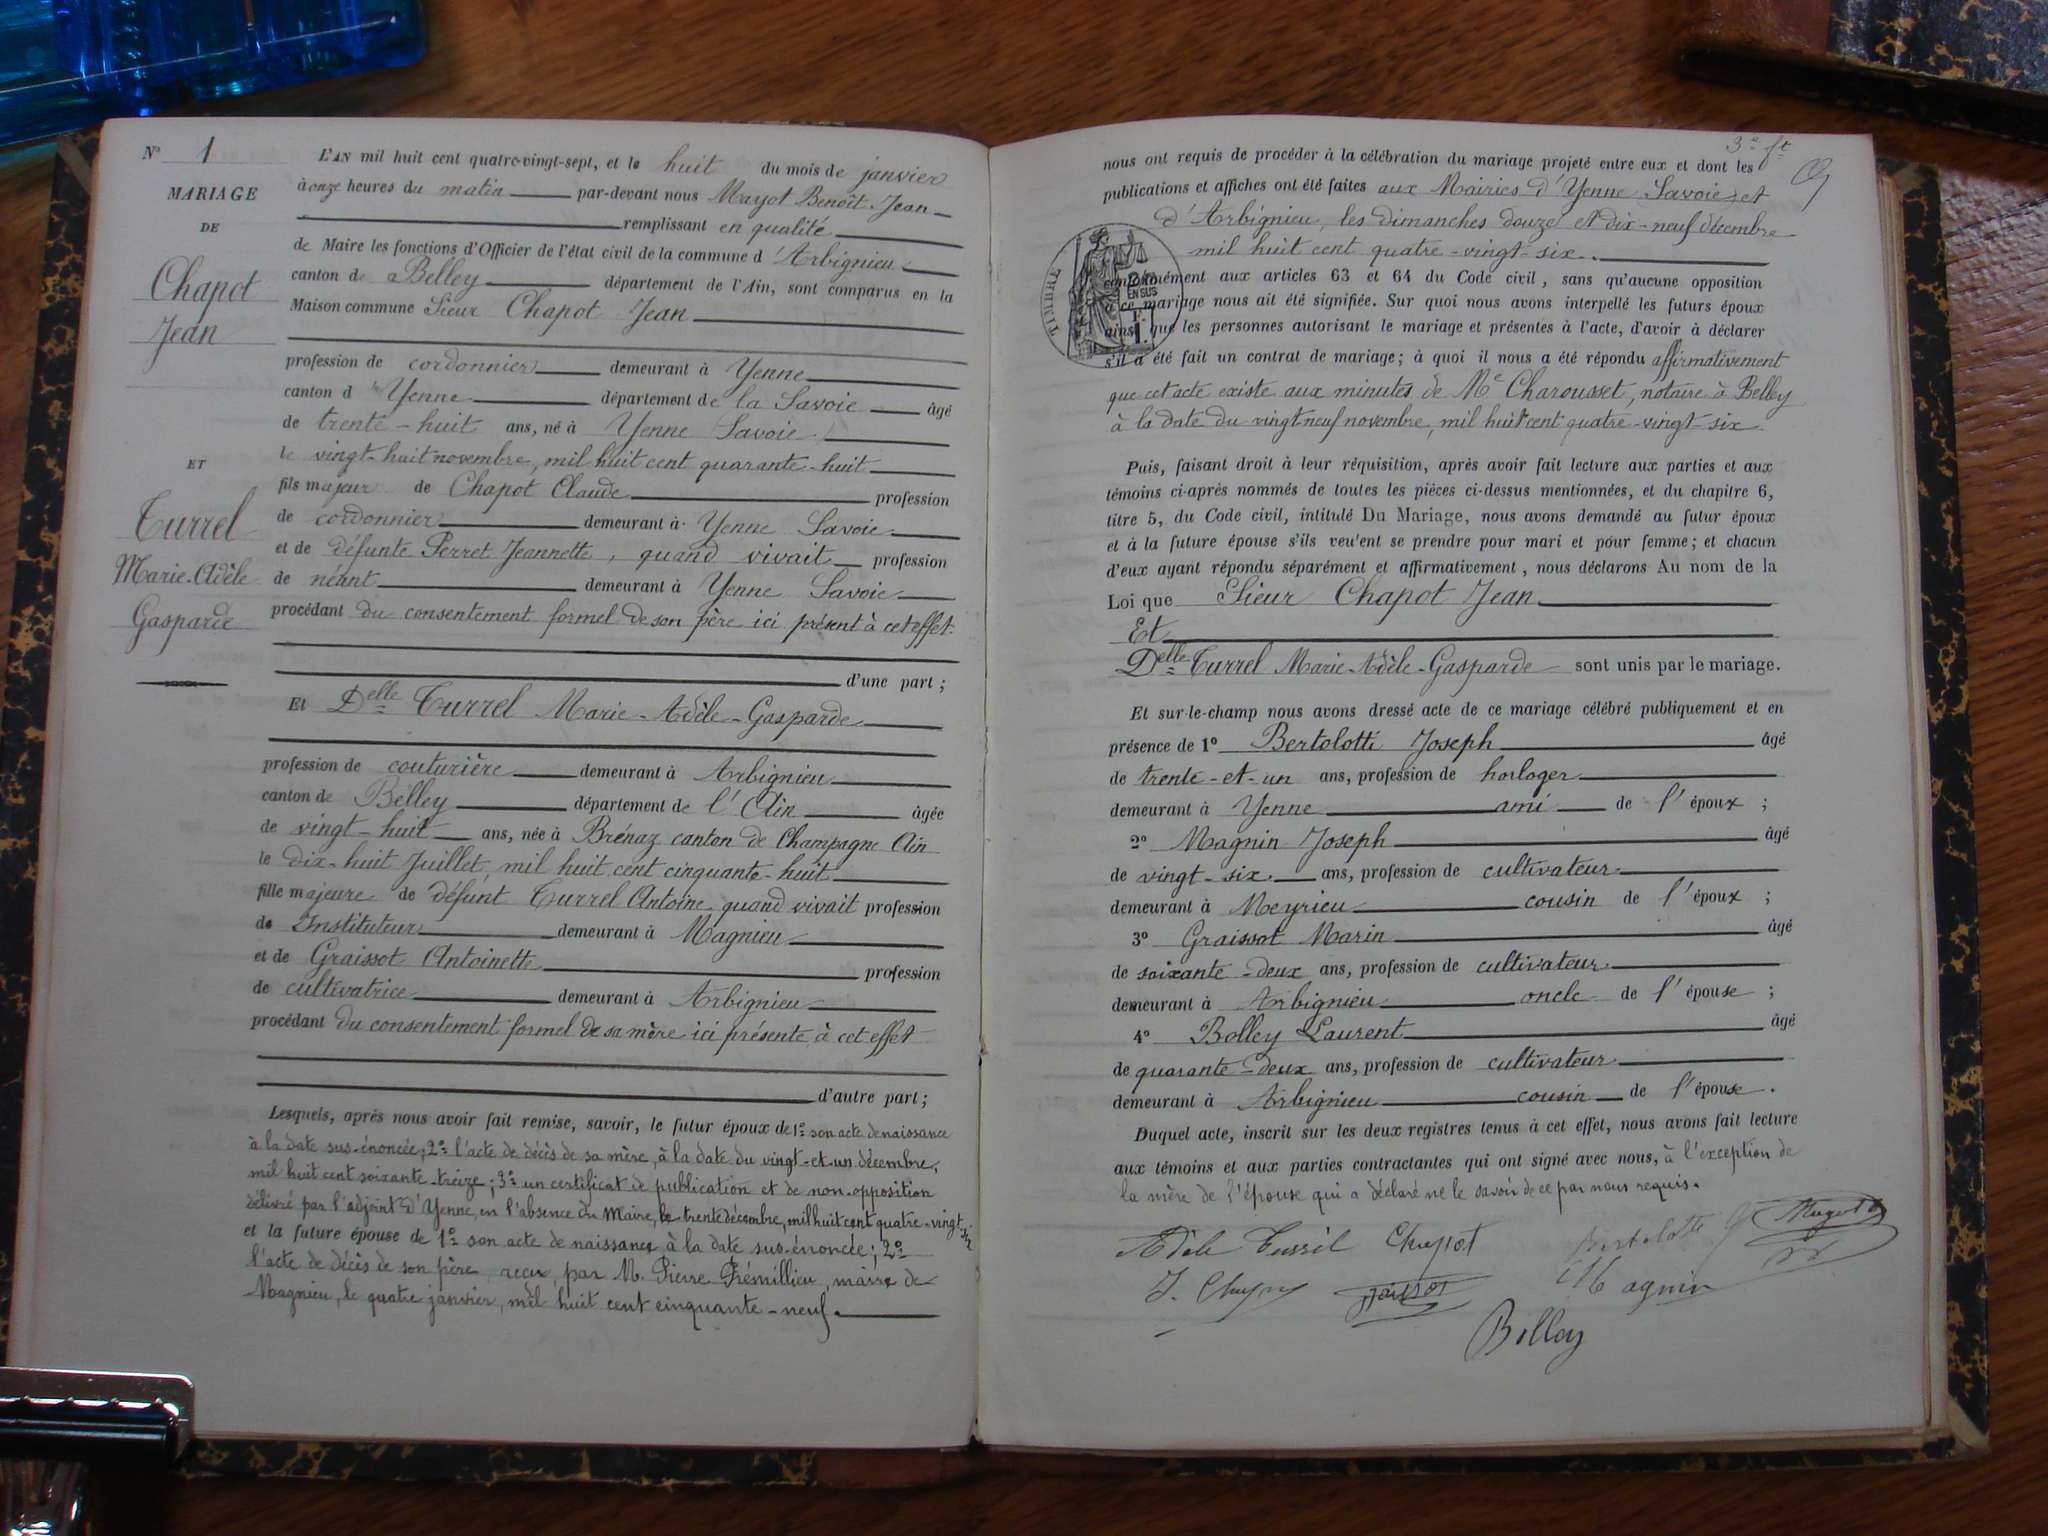 No 1
MARIAGE
DE
Chapot
Jean
ET
Turrel
Marie-Adèle
Gasparde
L'AN mil huit cent quatre-vingt-sept, et le huit du mois de janvier
à onze heures du matin par-devant nous Mayot Benoît Jean
remplissant en qualité
de Maire les fonctions d'Officier de l'état civil de la commune d'Arbignieu
canton de Belley département de l'Ain, sont comparus en la
Maison commune Sieur Chapot Jean
profession de cordonnier demeurant à Yenne
canton d' Yenne département de la Savoie âgé
de trente-huit ans, né à Yenne Savoie
le vingt-huit novembre, mil huit cent quarante-huit
fils majeur de Chapot Claude profession
de cordonnier demeurant à Yenne Savoie
et de défunte Perret Jeannette, quand vivait profession
de néant demeurant à Yenne Savoie
procédant du consentement formel de son père ici présent à cet effet.
d'une part;
Et Delle Turrel Marie-Adèle-Gasparde
profession de couturière demeurant à Arbignieu
canton de Belley département de l'Ain âgée
de vingt-huit ans, née à Brénaz canton de Champagne Ain
le dix-huit Juillet, mil huit cent cinquante-huit
fille majeure de défunt Turrel Antoine quand vivait profession
de Instituteur demeurant à Magnieu
et de Graissot Antoinette profession
de cultivatrice demeurant à Arbignieu
procédant du consentement formel de sa mère ici présente, à cet effet
d'autre part;
Lesquels, après nous avoir fait remise, savoir, le futur époux de 1º son acte de naissance
à la date sus-énoncée; 2º l'acte de décès de sa mère, à la date du vingt-et-un décembre,
mil huit cent soixante-treize; 3º un certificat de publication et de non-opposition
délivré par l'adjoint d'Yenne, en l'absence du Maire, le trente décembre, mil huit cent quatre-vingt-six
et la future épouse de 1º son acte de naissance à la date sus-énoncée; 2º
l'acte de décès de son père, reçu, par M. Pierre Frémillieu, maire de
Magnieu, le quatre janvier, mil huit cent cinquante-neuf.
nous ont requis de procéder à la célébration du mariage projeté entre eux et dont les
publications et affiches ont été faites aux Mairies d'Yenne Savoie et
d'Arbignieu, les dimanches douze et dix-neuf décembre
mil huit cent quatre-vingt-six.
TIMBRE
EN SUS
conformément aux articles 63 et 64 du Code civil, sans qu'aucune opposition
à ce mariage nous ait été signifiée. Sur quoi nous avons interpellé les futurs époux
ainsi que les personnes autorisant le mariage et présentes à l'acte, d'avoir à déclarer
s'il a été fait un contrat de mariage; à quoi il nous a été répondu affirmativement
que cet acte existe aux minutes de Me Charousset, notaire à Belley
à la date du vingt neuf novembre, mil huit cent quatre-vingt-six
Puis, faisant droit à leur réquisition, après avoir fait lecture aux parties et aux
témoins ci-après nommés de toutes les pièces ci-dessus mentionnées, et du chapitre 6,
titre 5, du Code civil, intitulé Du Mariage, nous avons demandé au futur époux
et à la future épouse s'ils veu'ent se prendre pour mari et pour femme; et chacun
d'eux ayant répondu séparément et affirmativement, nous déclarons Au nom de la
Loi que Sieur Chapot Jean
Et
Delle Turrel Marie-Adèle-Gasparde sont unis par le mariage.
Et sur-le-champ nous avons dressé acte de ce mariage célébré publiquement et en
présence de 1º Bertolotti Joseph âgé
de trente-et-un ans, profession de horloger
demeurant à Yenne ami de l'époux;
2º Magnin Joseph âgé
de vingt-six ans, profession de cultivateur
demeurant à Meyrieu cousin de l'époux;
3º Graissot Marin âgé
de soixante-deux ans, profession de cultivateur
demeurant à Arbignieu oncle de l'épouse;
4º Bolley Laurent âgé
de quarante-deux ans, profession de cultivateur
demeurant à Arbignieu cousin de l'épouse.
Duquel acte, inscrit sur les deux registres tenus à cet effet, nous avons fait lecture
aux témoins et aux parties contractantes qui ont signé avec nous, à l'exception de
la mère de l'épouse qui a déclaré ne le savoir de ce par nous requis.
Adèle Turrel Chapot Bertolotti J Mayot
Magnin
Bolley